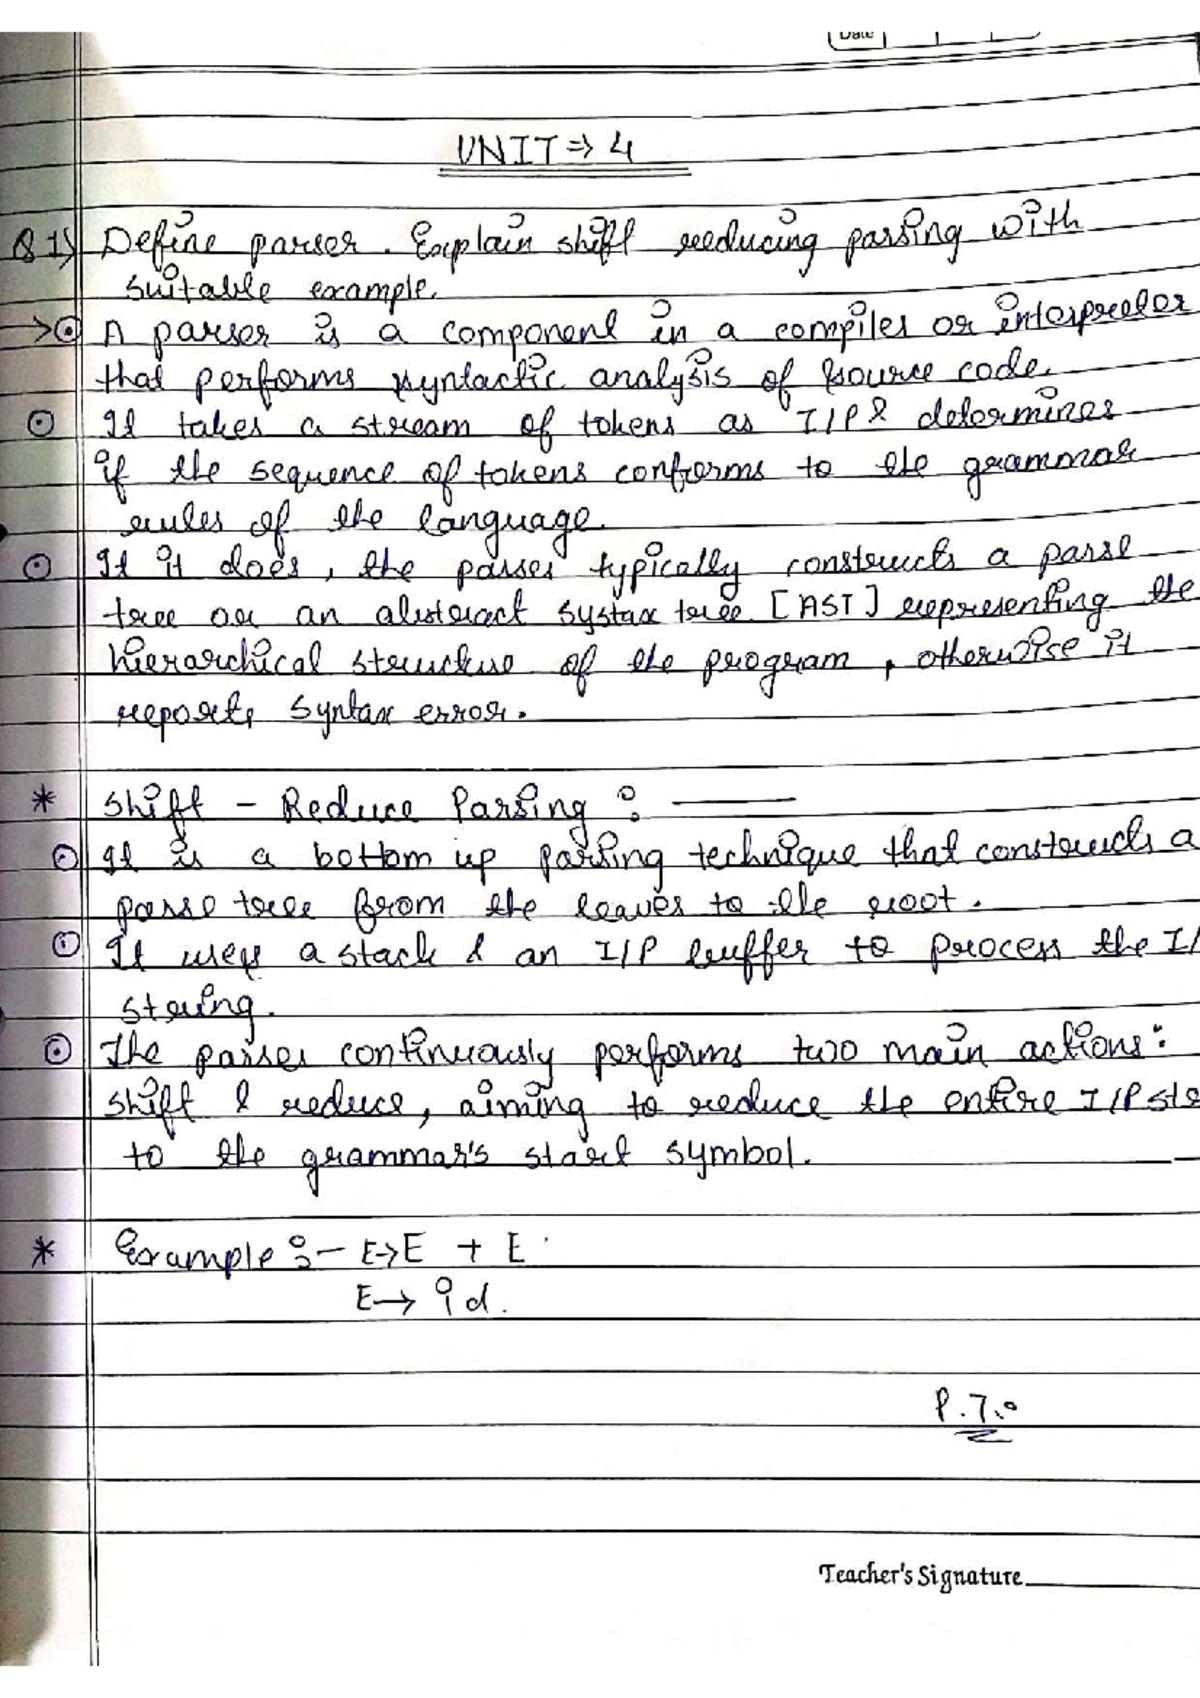 Date
UNIT ⇒ 4
Q 1) Define parser. Explain shift reducing parsing with
suitable example.
→ ⊙ A parser is a component in a compiler or interpreter
that performs syntactic analysis of source code.
⊙ It takes a stream of tokens as I/P & determines
if the sequence of tokens conforms to the grammar
rules of the language.
⊙ If it does, the parser typically constructs a parse
tree or an abstract systax tree [AST] representing the
hierarchical structure of the program, otherwise it
reports syntax error.
* Shift - Reduce Parsing :
⊙ It is a bottom up parsing technique that constructs a
parse tree from the leaves to the root.
⊙ It uses a stack & an I/P buffer to process the I/
string.
⊙ The parser continuously performs two main actions:
shift & reduce, aiming to reduce the entire I/P st
to the grammar's start symbol.
* Example :- E→E + E
E→ id.
P.T.O
Teacher's Signature